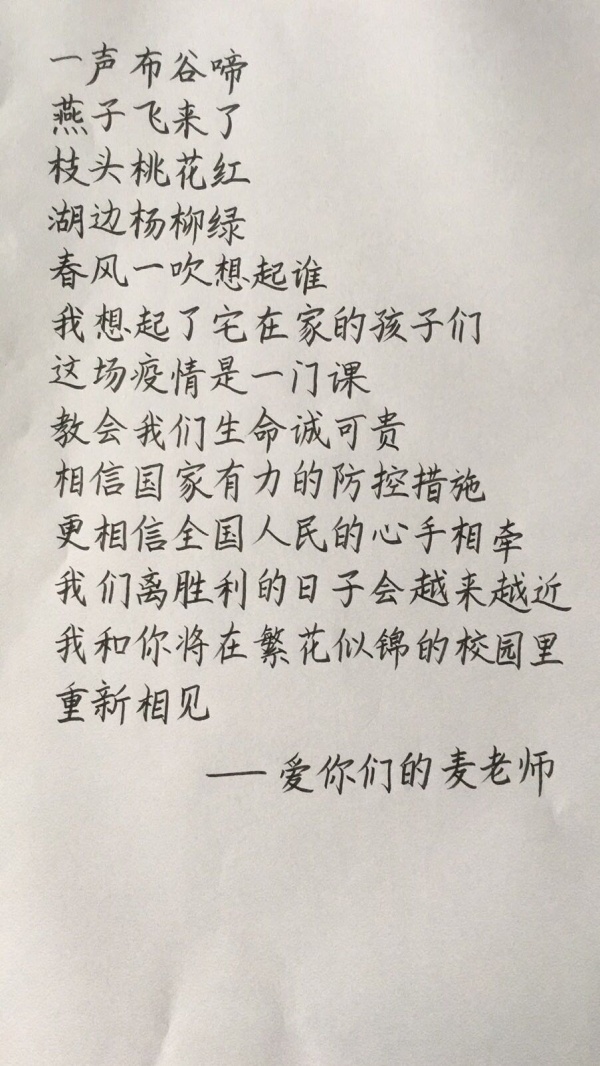 一声布谷啼
燕子飞来了
枝头桃花红
湖边杨柳绿
春风一吹想起谁
我想起了宅在家的孩子们
这场疫情是一门课
教会我们生命诚可贵
相信国家有力的防控措施
更相信全国人民的心手相牵
我们离胜利的日子会越来越近
我和你将在繁花似锦的校园里
重新相见
——爱你们的麦老师